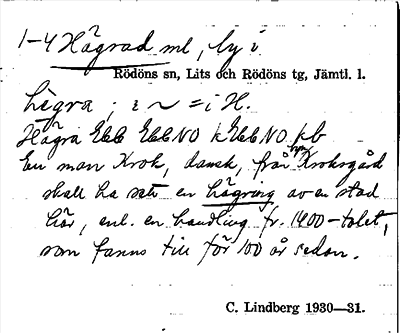 1-4 Hägrad ml, by i
Rödöns sn, Lits och Rödöns tg, Jämtl. l.
hägra ; i ~ = i H.
Hägra Ebb Ebb NO kEbb NO kb
En man Krok, dansk, från Kroksgård
skall ha satt en hägring av en stad
här, enl. en handling fr. 1400-talet,
som fanns till för 100 år sedan.
C. Lindberg 1930—31.